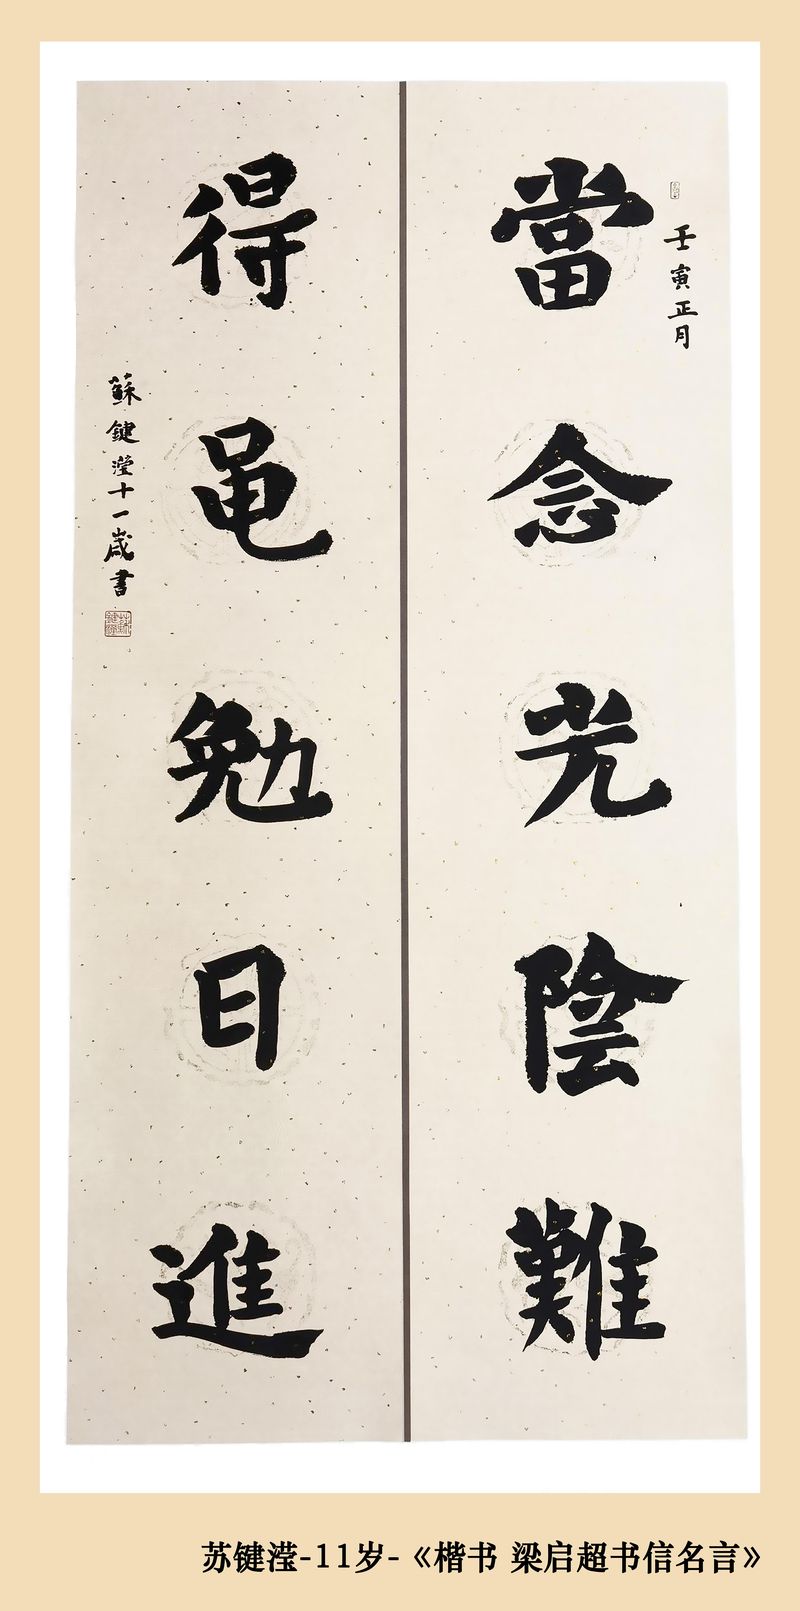 壬寅正月
當念光陰難
得黾勉日進
蘇鍵瀅十一歲書
苏键滢-11岁-《楷书 梁启超书信名言》